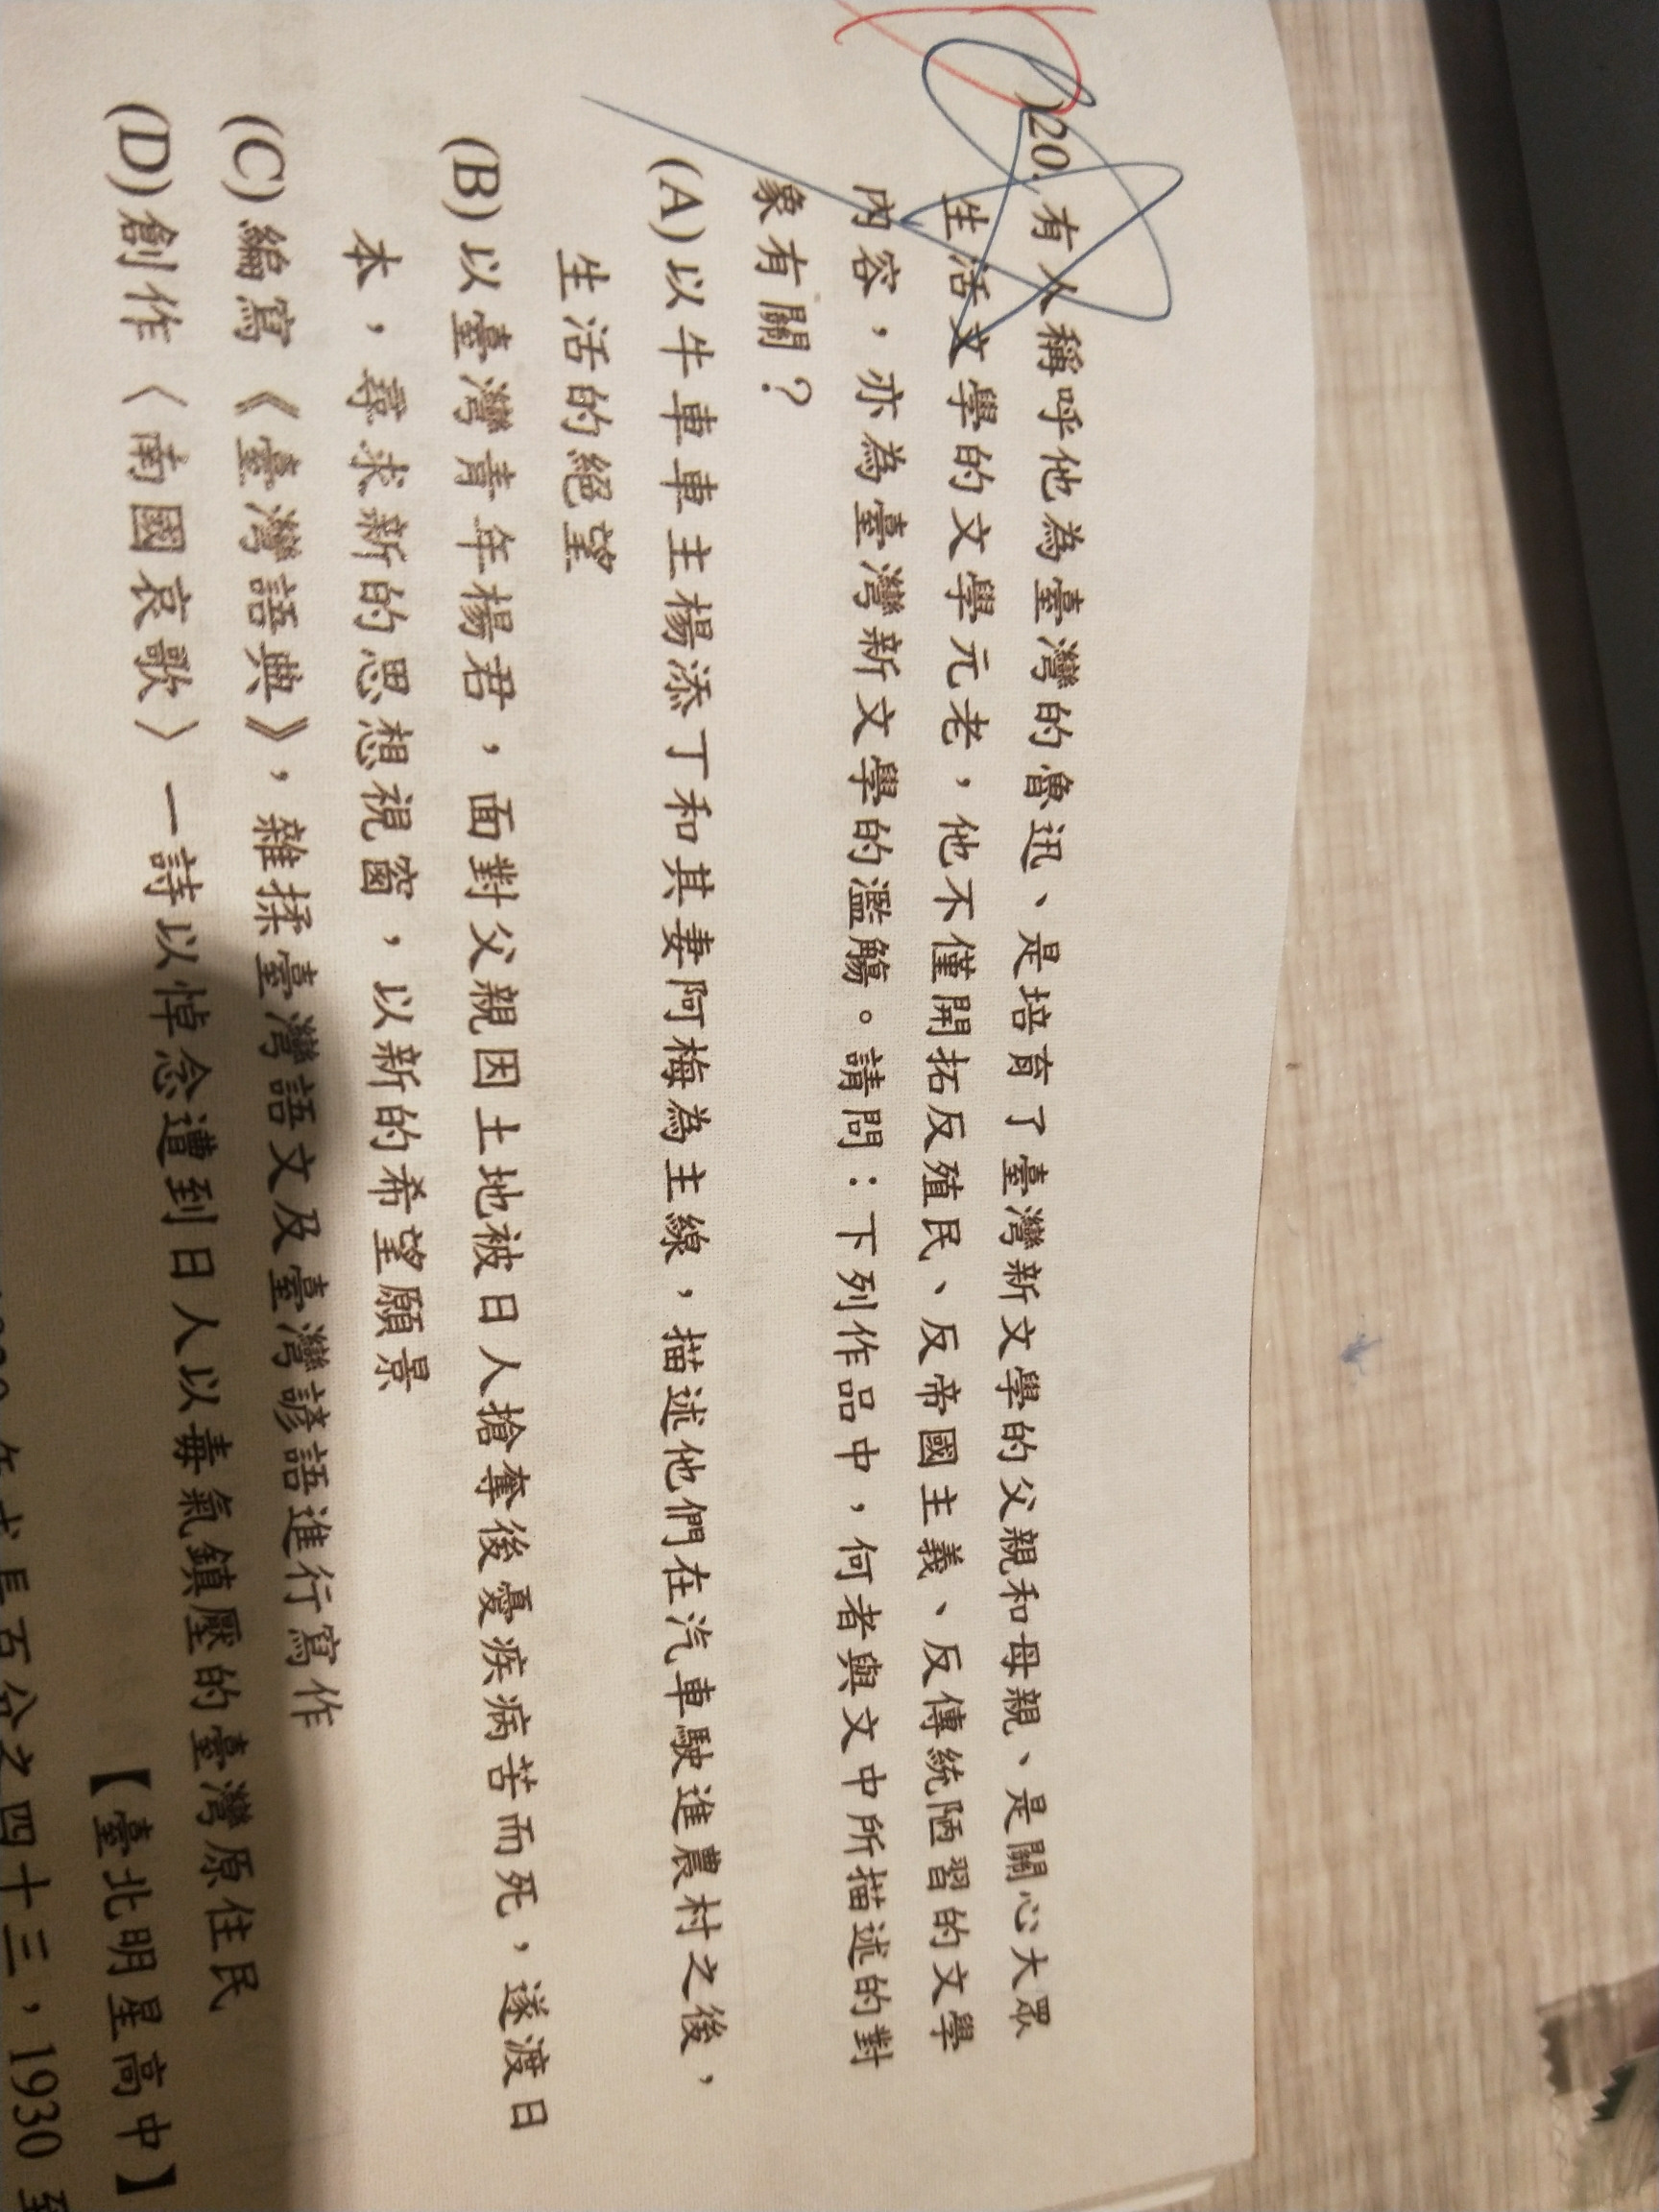 )20.有人稱呼他為臺灣的魯迅、是培育了臺灣新文學的父親和母親、是關心大眾
生活文學的文學元老，他不僅開拓反殖民、反帝國主義、反傳統陋習的文學
內容，亦為臺灣新文學的濫觴。請問：下列作品中，何者與文中所描述的對
象有關？
(A)以牛車車主楊添丁和其妻阿梅為主線，描述他們在汽車駛進農村之後，
生活的絕望
(B)以臺灣青年楊君，面對父親因土地被日人搶奪後憂疾病苦而死，遂渡日
本，尋求新的思想視窗，以新的希望願景
(C)編寫《臺灣語典》，雜揉臺灣語文及臺灣諺語進行寫作
(D)創作〈南國哀歌〉一詩以悼念遭到日人以毒氣鎮壓的臺灣原住民
【臺北明星高中】
年成長百分之四十三，1930至